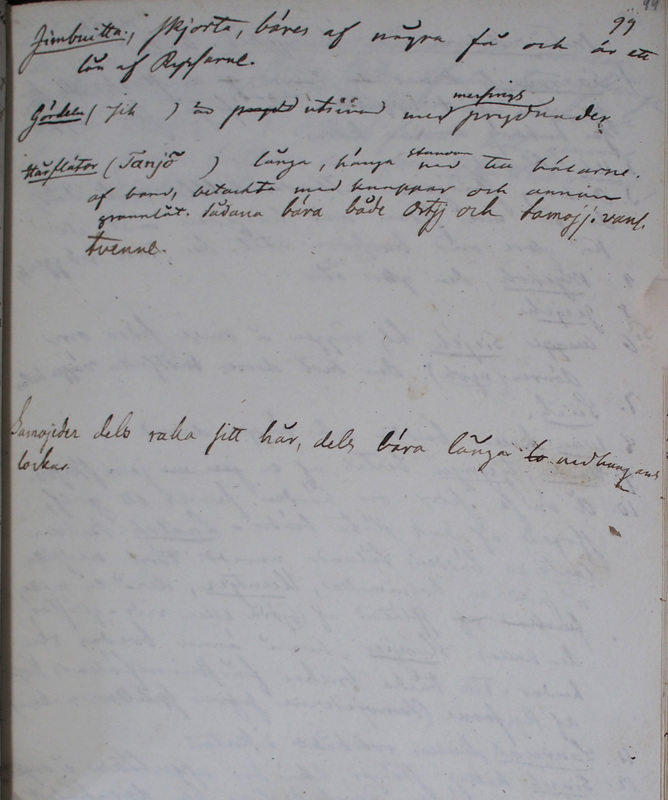 99
Jimbuitta, skjorta, bäres af några få och är ett
lån af Ryssarne.
messings
Gördeln (jih ) är prydd utsirad med prydnader
stundom
Hårflätor (Tanjö ) långa, hänga ned till hälarne.
af band, betäckta med knappar och annan
grannlåt. Sådana bära både Ostj och Samoj. vanl.
tvenne.
Samojeder dels raka sitt hår, dels bära långa lo nedhängand
lockar.